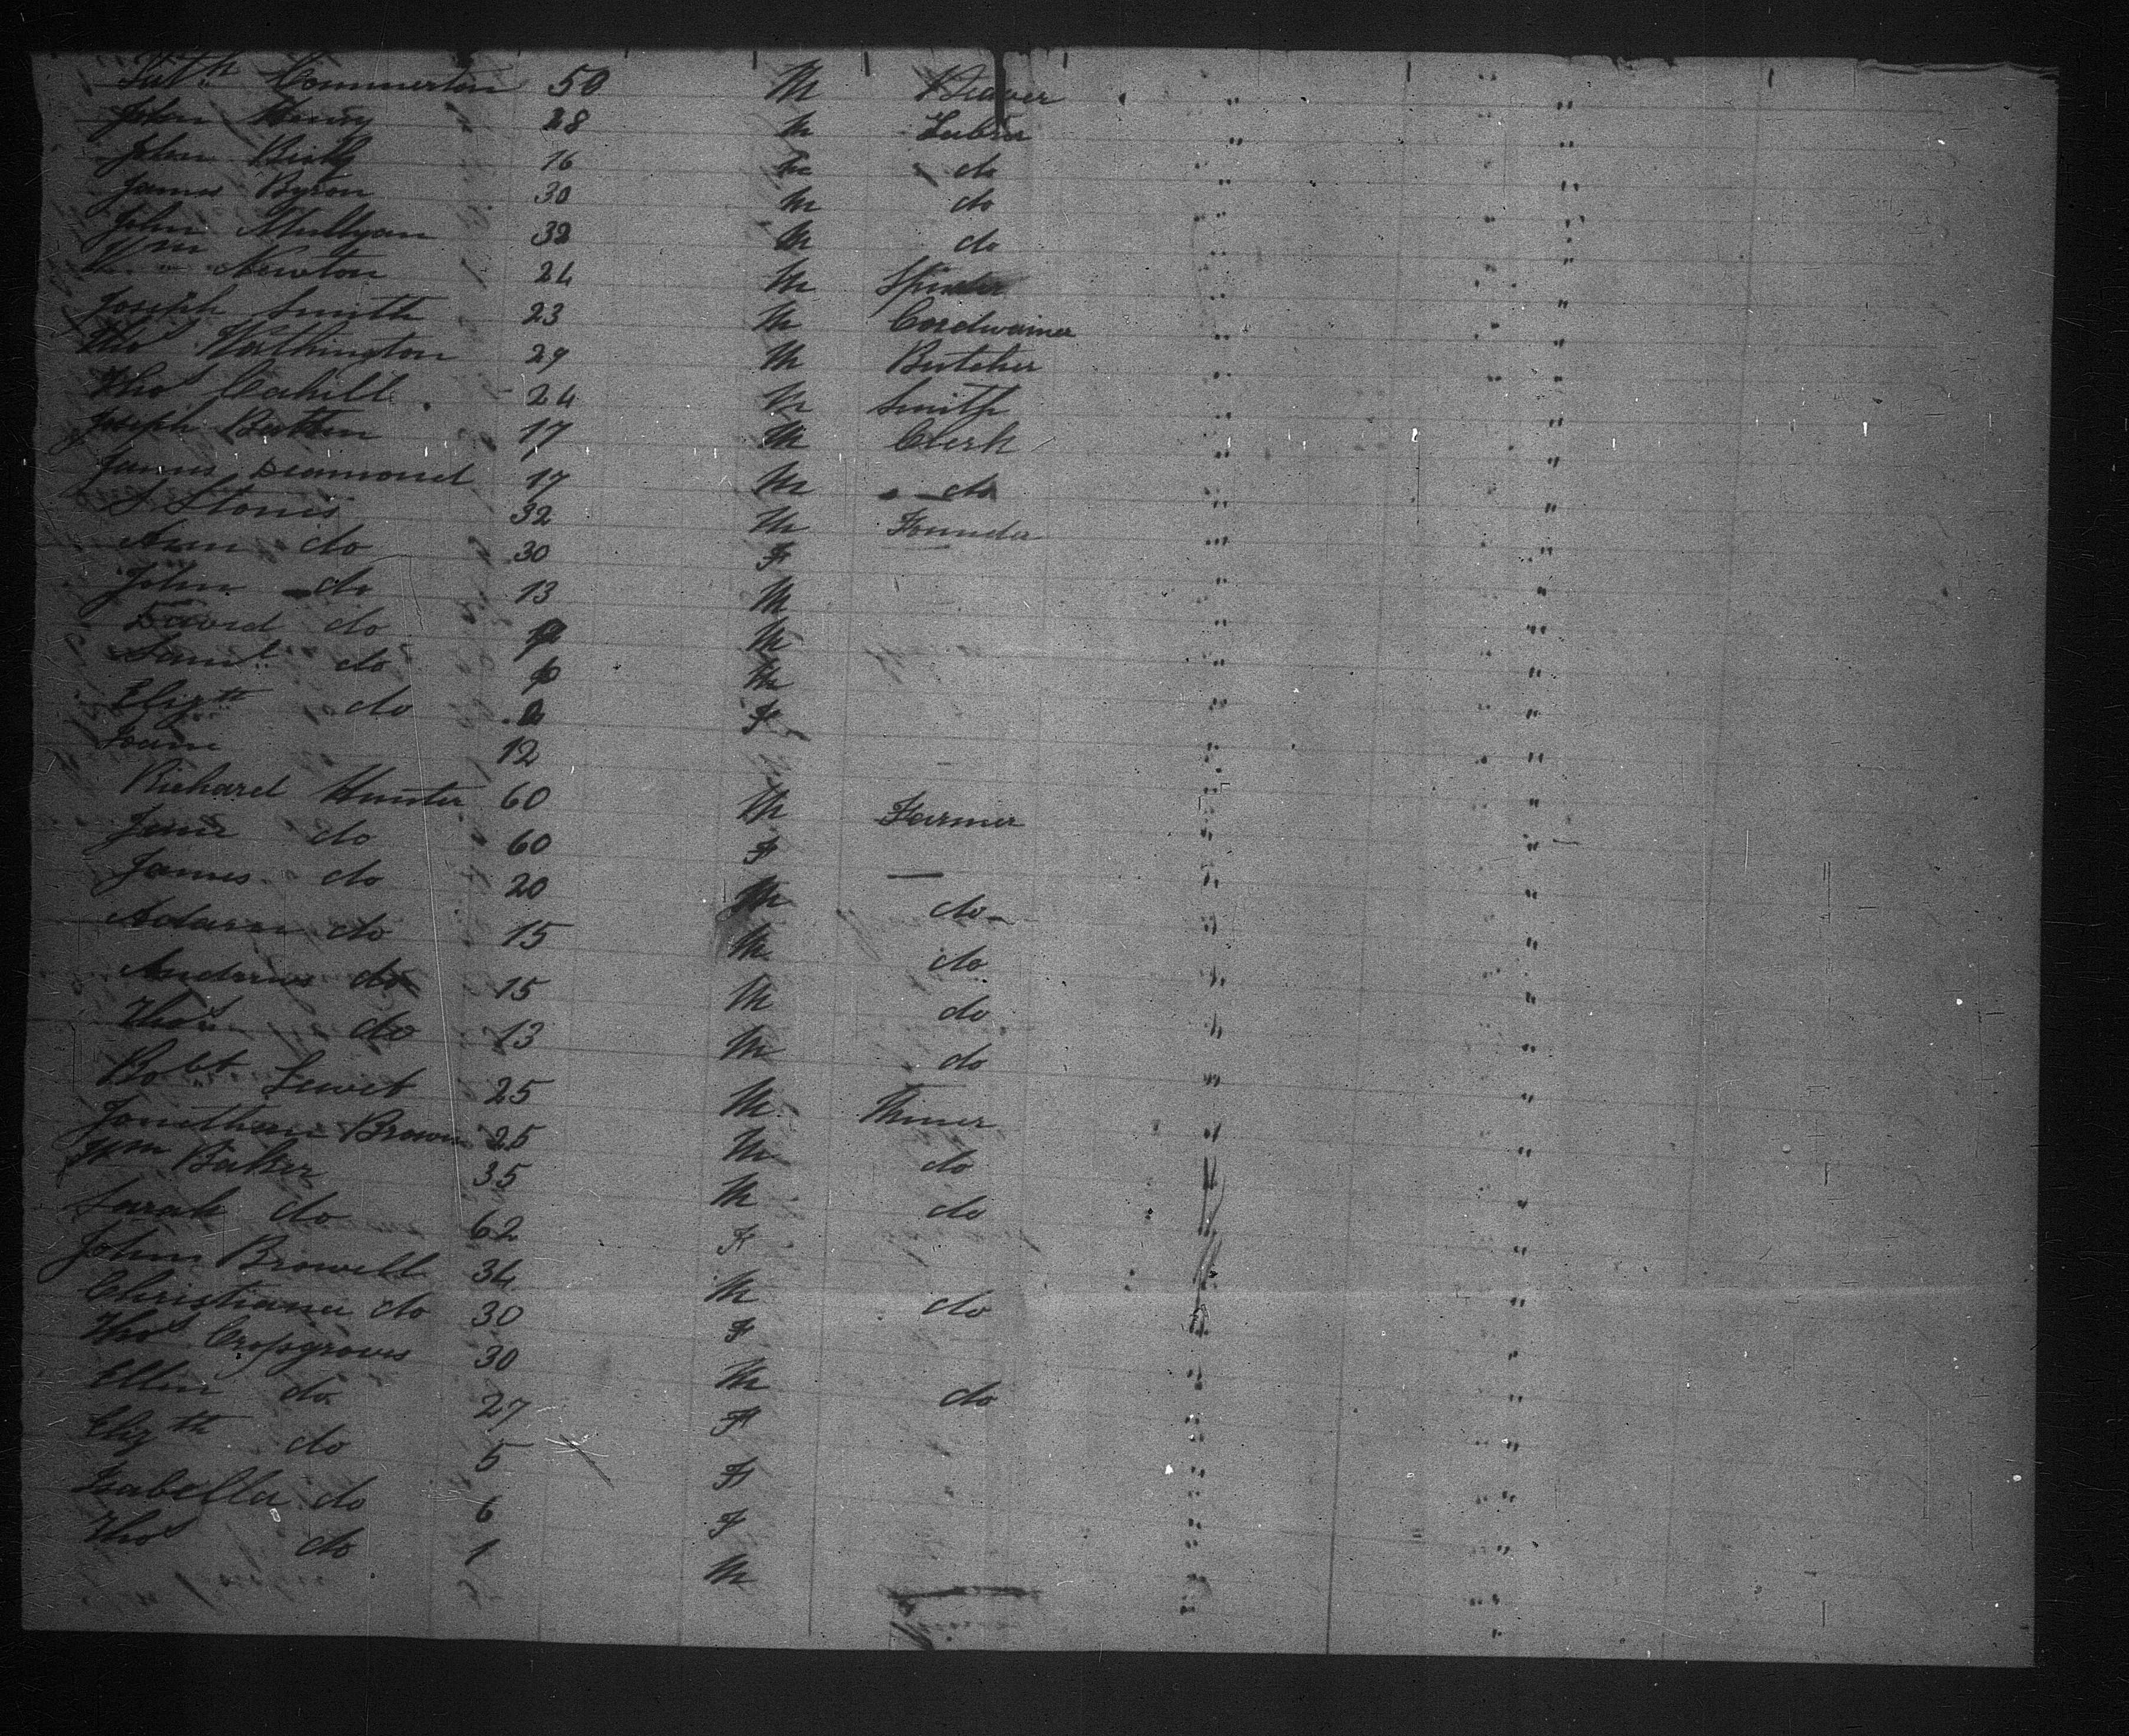 50 M Weaver " "
John Henry 28 M Labrer " "
John 16 M do " "
James Byron 30 M do " "
John Mullyan 32 M do " "
Wm Newton 24 M Spinder " "
Joseph Smith 23 M Cordwainer " "
Thos Wathington 29 M Butcher " "
Thos Cahill 24 M Smith " "
Joseph 17 M Clerk " "
James Deamond 17 M do " "
S Stones 32 M Founder " "
Ann do 30 F " "
John do 13 M " "
David do M " "
Saml do M " "
Elizth do F " "
12 " "
Richard Hunter 60 M Farmer " "
Jane do 60 F — " "
James do 20 M do " "
Adam do 15 M do " "
Andrew do 15 M do " "
Thos do 13 M do " "
Robt Lewet 25 M Miner " "
Jonathan Brown 25 M do " "
Wm Baker 35 M do " "
Sarah do 62 F "
John Browell 34 M do " "
Christiana do 30 F " "
Thos Crossgroves 30 M do " "
Ellin do 27 F " "
Elizth do 5 F " "
Isabella do 6 F " "
Thos do 1 M " "